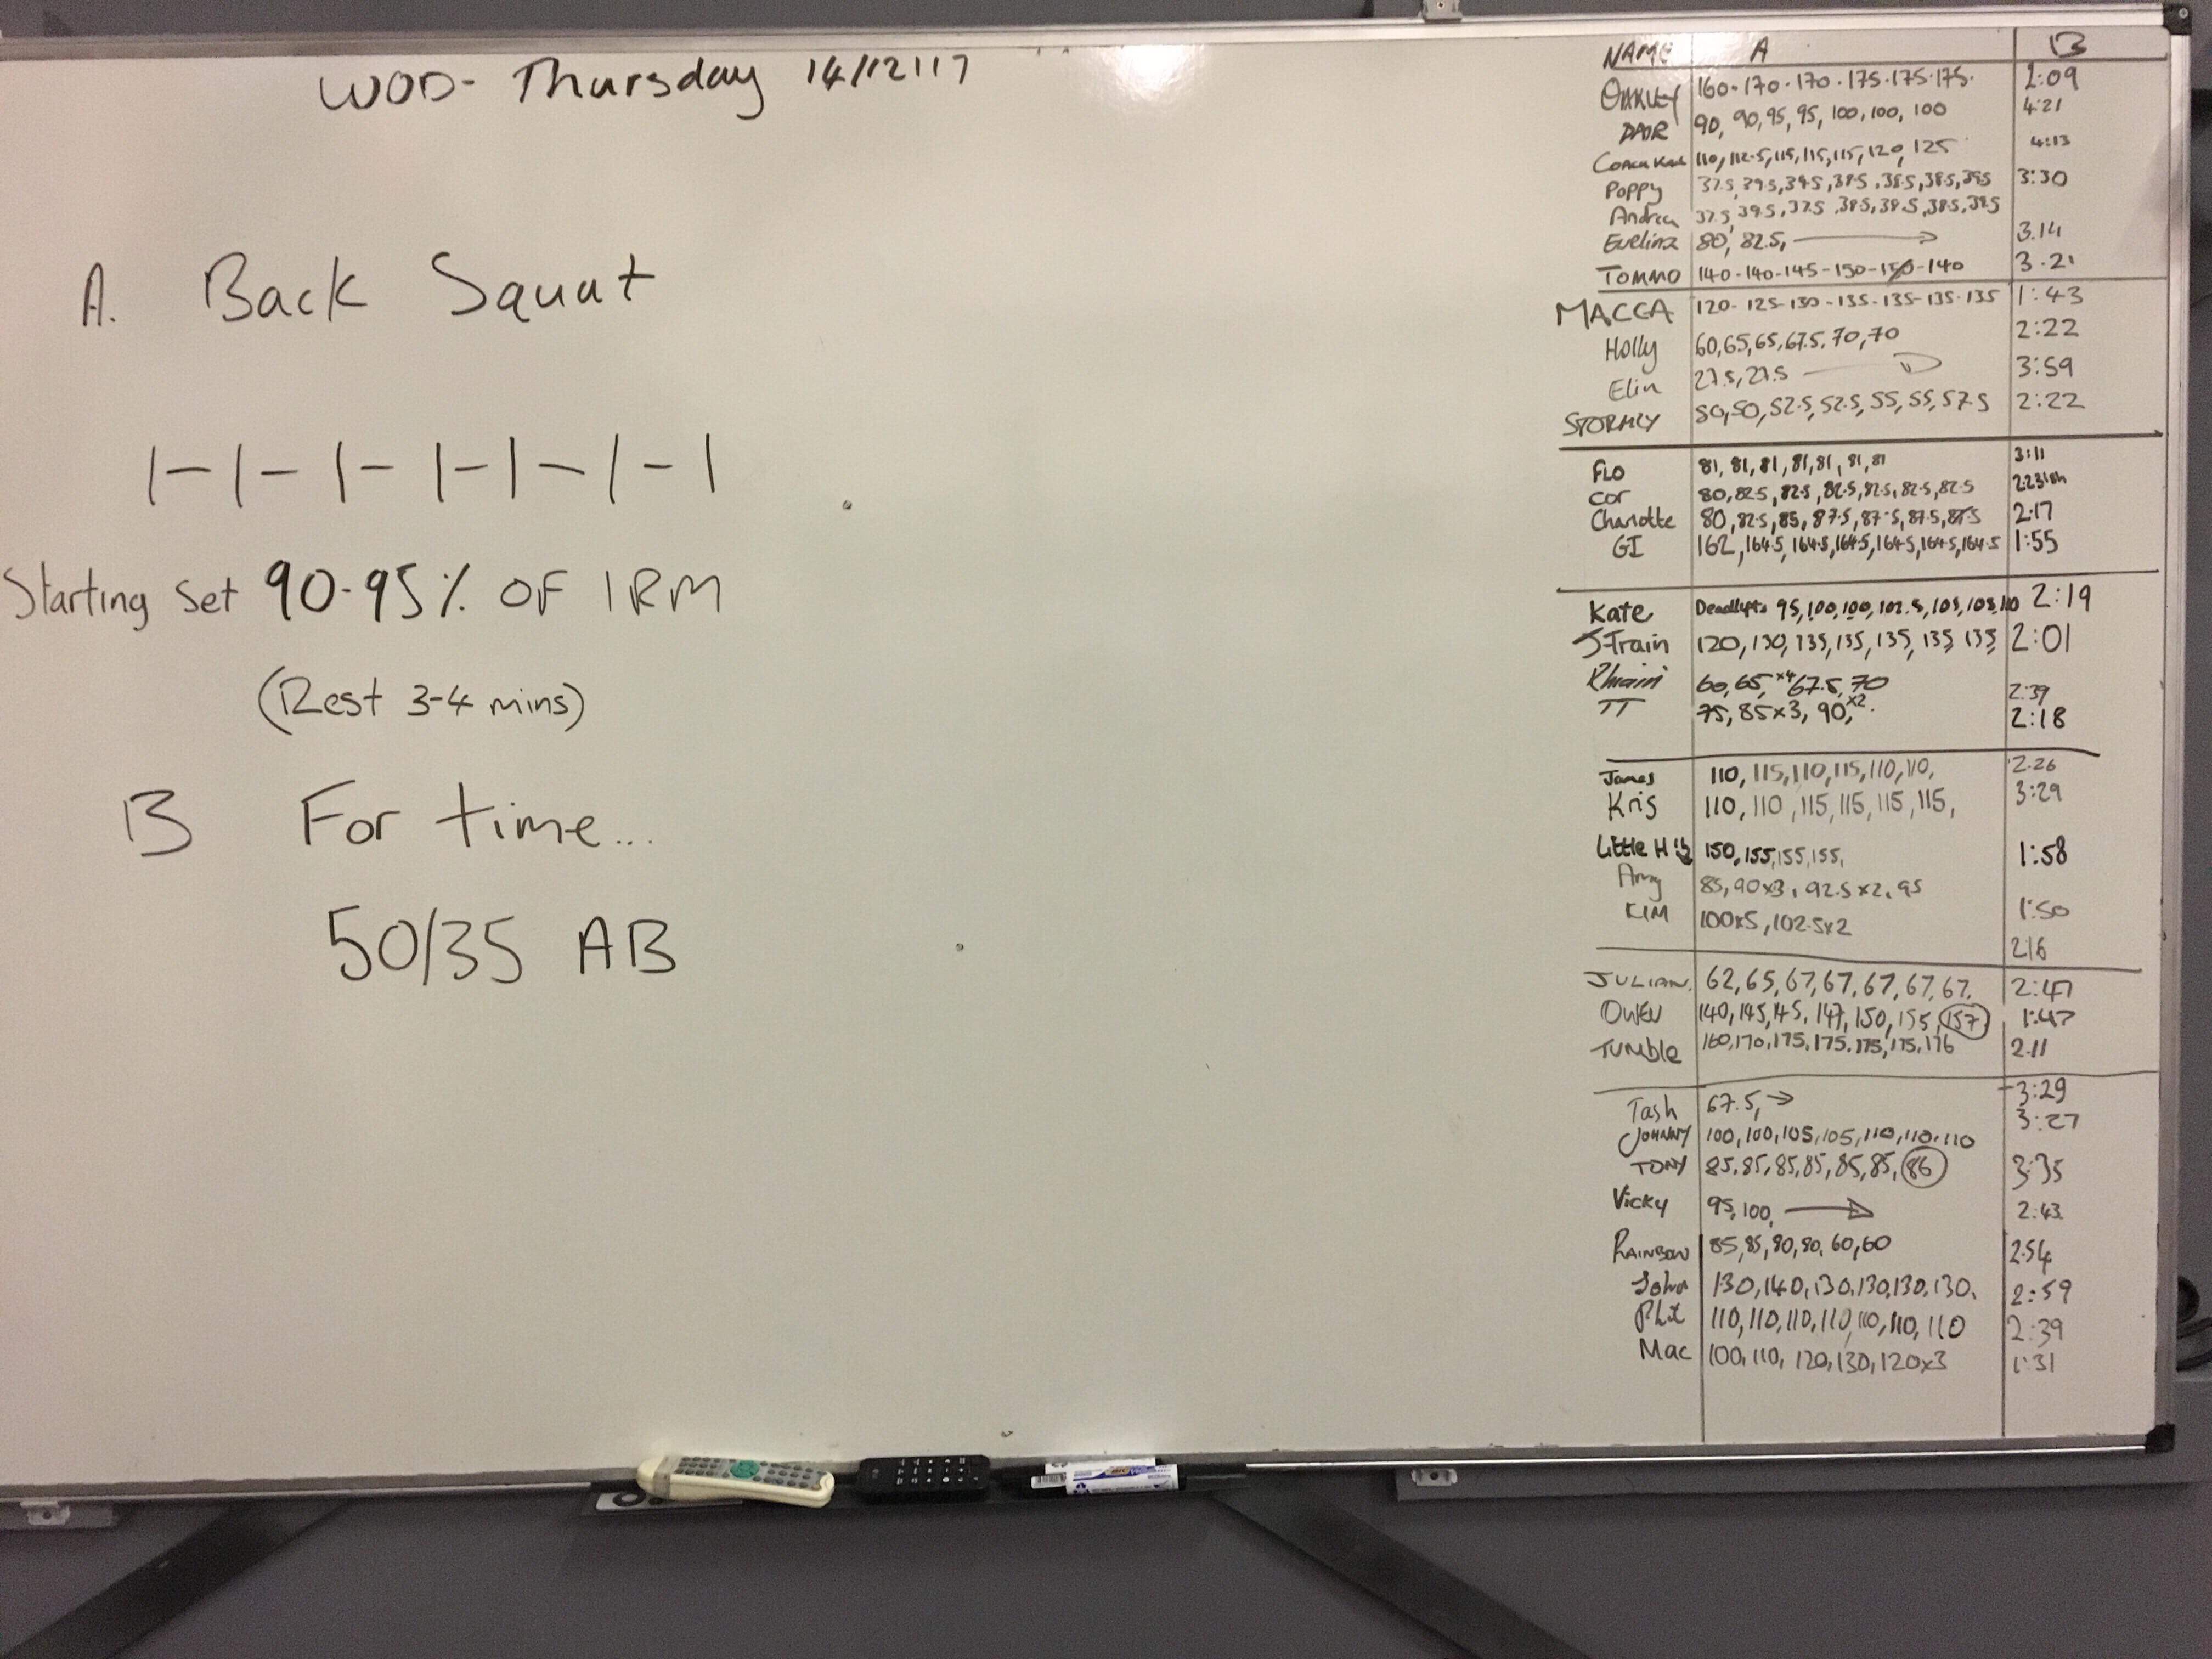 WOD- Thursday 14/12/17
A. Back Squat
1-1-1-1-1-1-1
Starting Set 90-95% OF 1RM
(Rest 3-4 mins)
B For time...
50/35 AB
NAME A B
OAKLEY 160-170-170-175-175-175- 2:09
90, 90, 95, 95, 100, 100, 100 4:21
Coach 110, 112.5, 115, 115, 115, 120, 125 4:13
Poppy 37.5, 39.5, 39.5, 38.5, 38.5, 38.5, 39.5 3:30
Andrea 37.5, 39.5, 37.5, 38.5, 38.5, 38.5, 39.5
Evelina 80, 82.5, → 3.14
TOMMO 140-140-145-150-150-140 3.21
MACCA 120-125-130-135-135-135-135 1:43
Holly 60,65,65,67.5,70,70 2:22
Elin 27.5, 27.5 → 3:59
STORMLY 50,50,52.5,52.5,55,55,57.5 2:22
FLO 81, 81, 81, 81, 81, 81, 81 3:11
Cor 80, 82.5, 82.5, 82.5, 82.5, 82.5, 82.5
Charlotte 80, 82.5, 85, 87.5, 87.5, 87.5, 87.5 2:17
GI 162, 164.5, 164.5, 164.5, 164.5, 164.5, 164.5 1:55
Kate Deadlifts 95, 100, 100, 102.5, 105, 105, 110 2:19
J-Train 120, 130, 135, 135, 135, 135, 135 2:01
Rhiain 60, 65, x4 67.5, 70 2:39
TT 75, 85x3, 90, x2. 2:18
James 110, 115, 110, 115, 110, 110, 2.26
Kris 110, 110, 115, 115, 115, 115, 3:29
Little H 150, 155, 155, 155, 1:58
Amy 85, 90x3, 92.5x2, 95
KIM 100x5, 102.5x2 1:50
216
JULIAN. 62, 65, 67, 67, 67, 67, 67. 2:47
OWEN 140, 145, 145, 147, 150, 155, 157 1:47
TUMBLE 160, 170, 175, 175, 175, 175, 176 2.11
3:29
Tash 67.5, → 3:27
JOHNNY 100, 100, 105, 105, 110, 110, 110
TONY 85, 85, 85, 85, 85, 85, 86 3:35
Vicky 95, 100, → 2:43
RAINBOW 85, 85, 90, 90, 60, 60 2.54
John 130, 140, 130, 130, 130, 130. 2:59
Phil 110, 110, 110, 110, 110, 110, 110 2:39
Mac 100, 110, 120, 130, 120x3 1:31